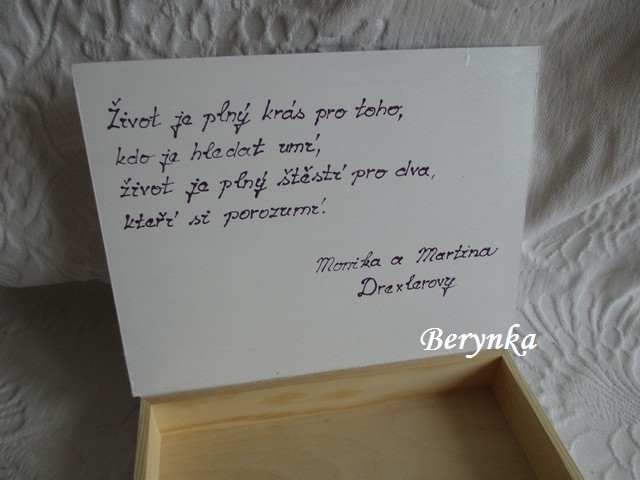 Život je plný krás pro toho,
kdo je hledat umí,
život je plný štěstí pro dva,
kteří si porozumí!
Monika a Martina
Drexlerovy
Berynka